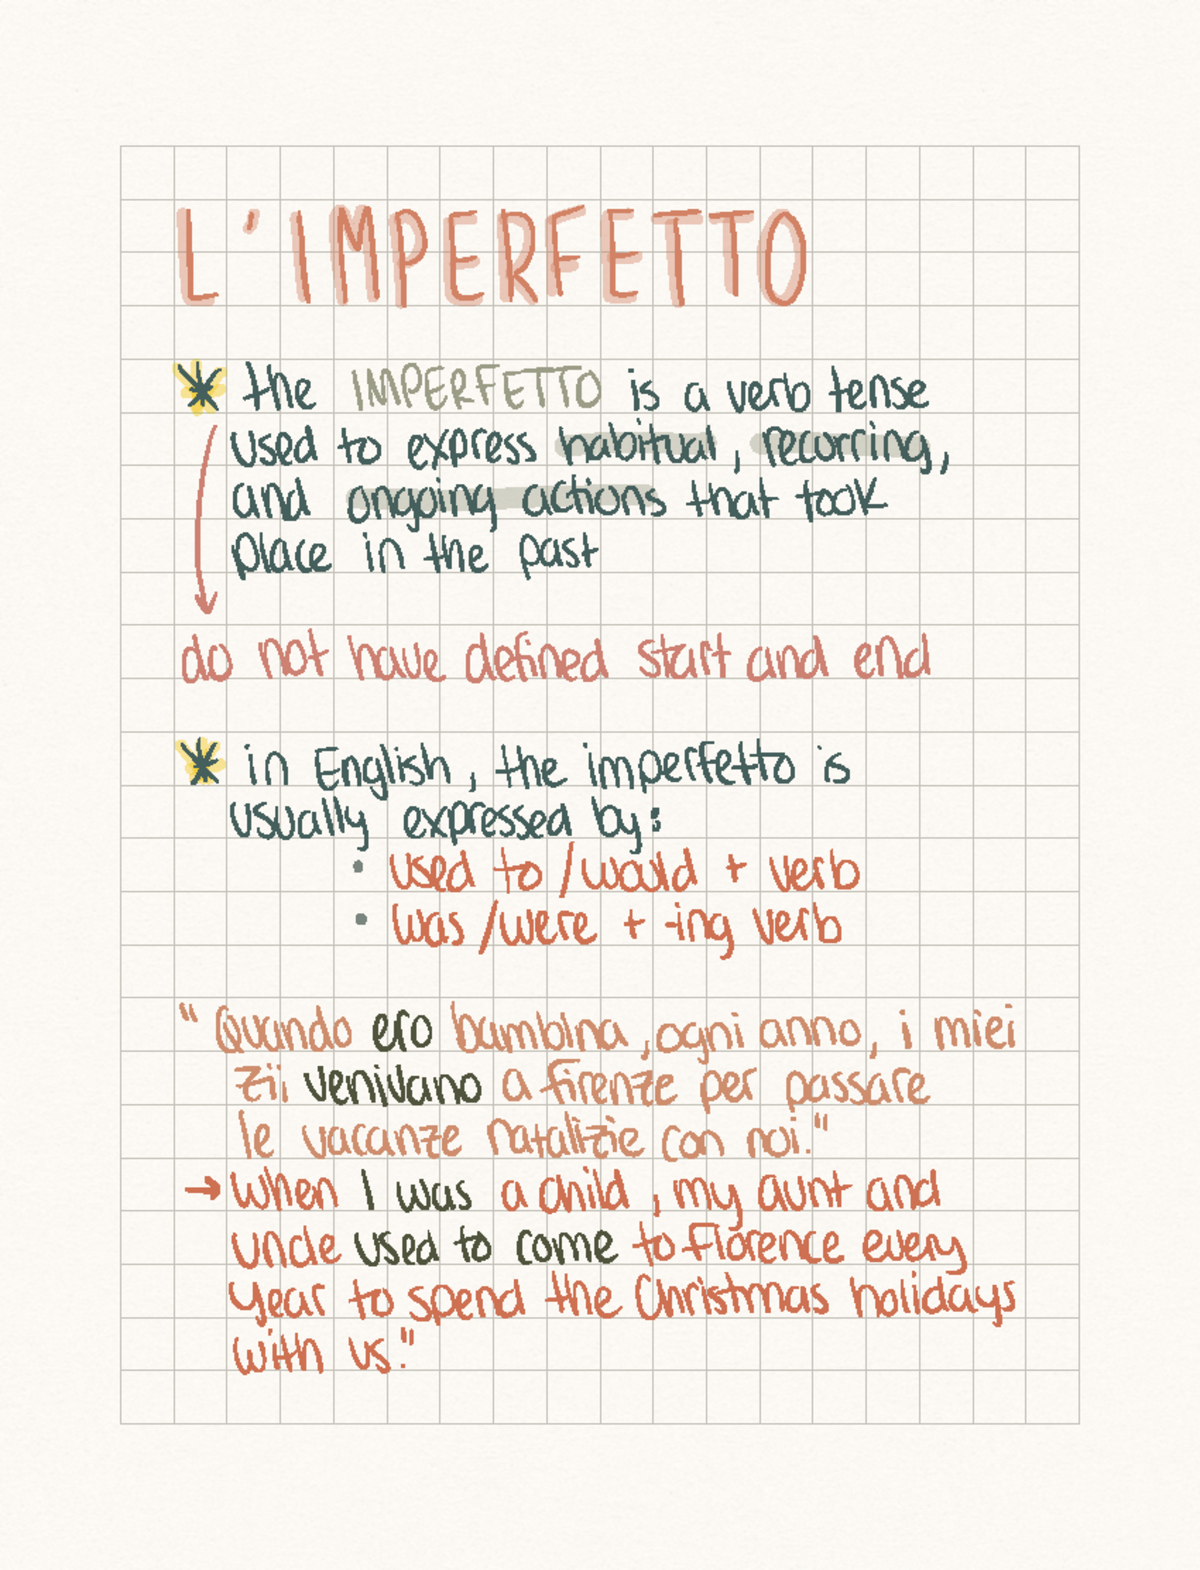 L'IMPERFETTO
* the IMPERFETTO is a verb tense
used to express habitual, recurring,
and ongoing actions that took
place in the past
do not have defined start and end
* in English, the imperfetto is
usually expressed by:
• used to / would + verb
• was / were + -ing verb
"Quando ero bambina, ogni anno, i miei
zii venivano a firenze per passare
le vacanze natalizie con noi."
→ When I was a child, my aunt and
uncle used to come to Florence every
year to spend the Christmas holidays
with us."